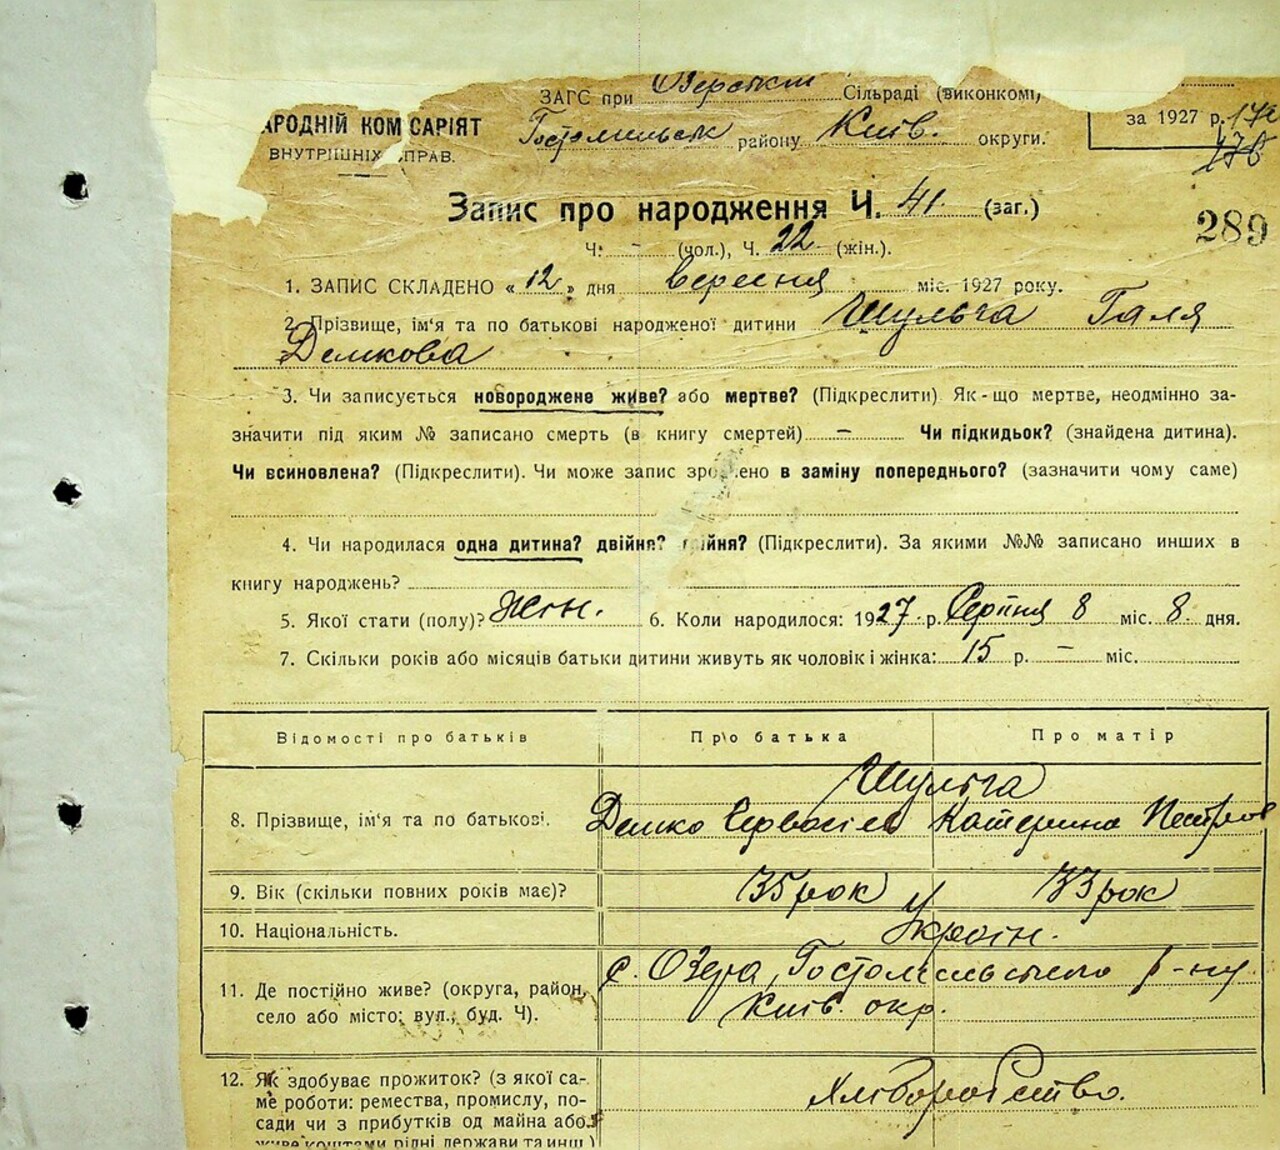 ЗАГС при Озерськм Сільраді (виконкомі)
АРОДНІЙ КОМІСАРІЯТ
Гостомильськ району Київ. округи.
за 1927 р. 172
ВНУТРІШНІХ СПРАВ.
178
Запис про народження Ч. 41. (заг.)
289
Ч: - (чол.), Ч. 22 (жін.).
1. ЗАПИС СКЛАДЕНО « 12 » дня вересня міс. 1927 року.
2. Прізвище, ім'я та по батькові народженої дитини Шульга Галя
Демкова
3. Чи записується новороджене живе? або мертве? (Підкреслити). Як-що мертве, неодмінно за-
значити під яким № записано смерть (в книгу смертей) — Чи підкидьок? (знайдена дитина).
Чи всиновлена? (Підкреслити). Чи може запис зроблено в заміну попереднього? (зазначити чому саме)
4. Чи народилася одна дитина? двійня? трійня? (Підкреслити). За якими №№ записано инших в
книгу народжень?
5. Якої стати (полу)? Жін. 6. Коли народилося: 1927 р. Серпня 8 міс. 8 дня.
7. Скільки років або місяців батьки дитини живуть як чоловік і жінка: 15 р. — міс.
Відомості про батьків Про батька Про матір
Шульга
8. Прізвище, ім'я та по батькові. Демко Катерина Петров
9. Вік (скільки повних років має)? 35 рок 33 рок
10. Національність. Україн.
с. Озера, Гостомельського р-ну
11. Де постійно живе? (округа, район,
Київ. окр.
село або місто; вул., буд. Ч).
12. Як здобуває прожиток? (з якої са-
Хліборобство.
ме роботи: ремества, промислу, по-
сади чи з прибутків од майна або
живе коштами рідні держави та инш.)